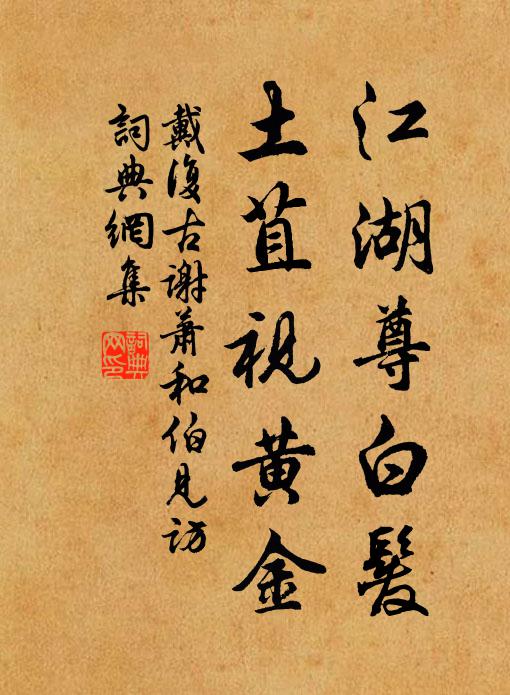 江湖尊白髮
土苴視黄金
戴復古謝蕭和伯見訪
詞典網集
詞典
网印